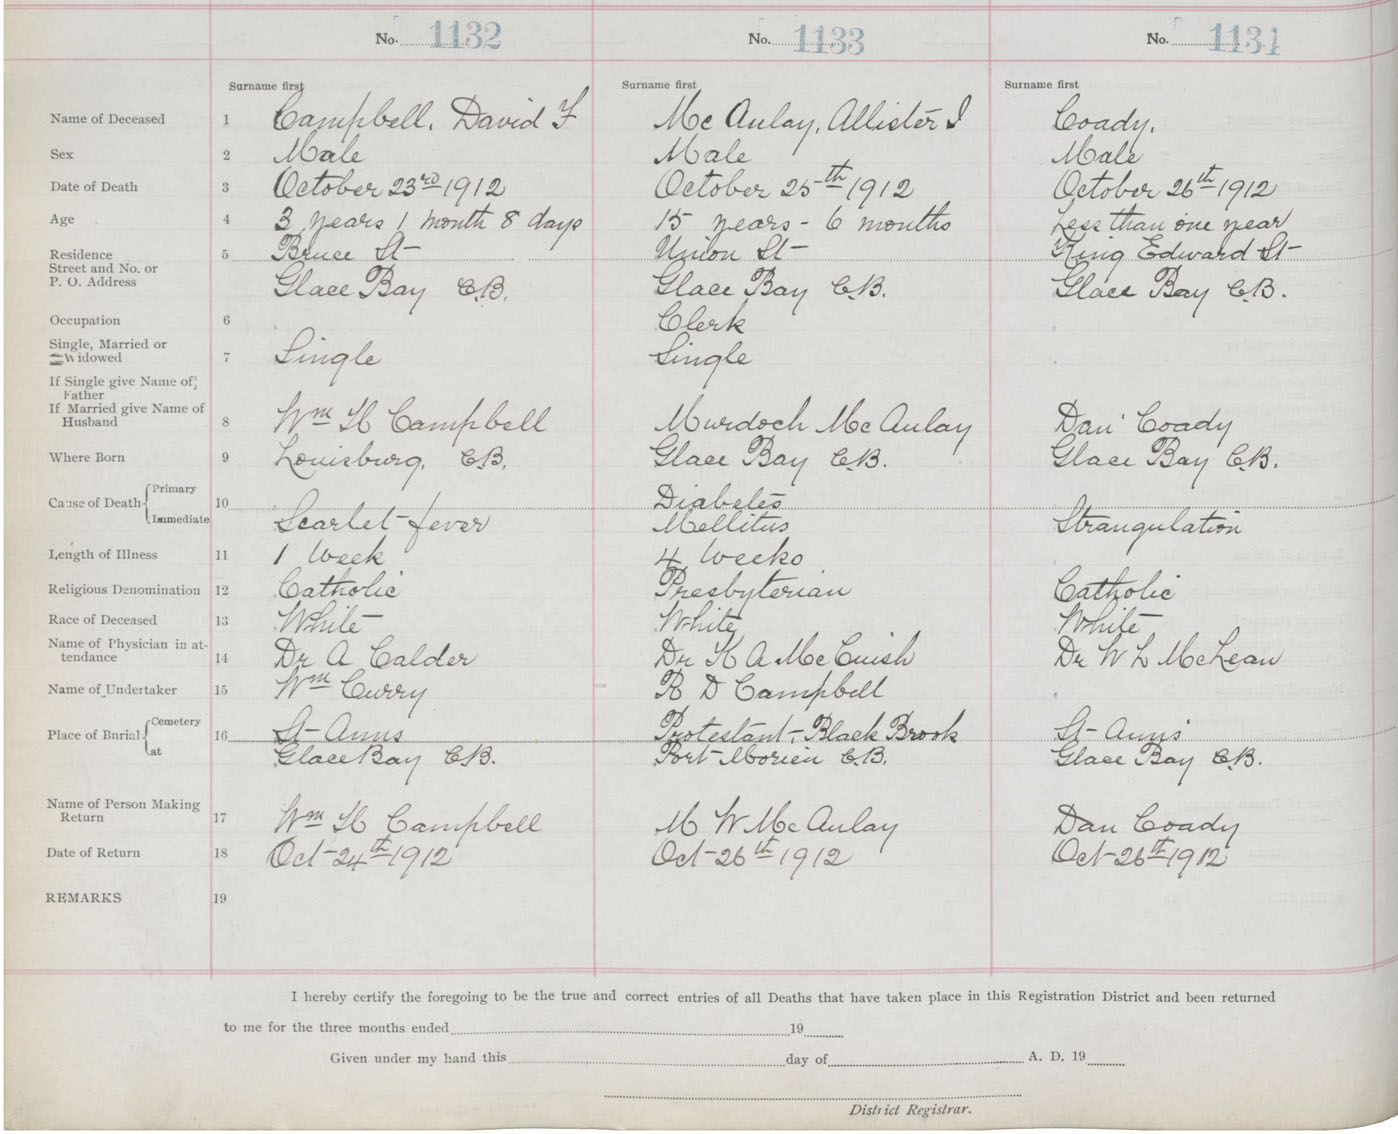 No. 1132 No. 1133 No. 1134
Surname first Surname first Surname first
Name of Deceased 1 Campbell, David F Mc Aulay, Allister J Coady,
Sex 2 Male Male Male
Date of Death 3 October 23rd 1912 October 25th 1912 October 26th 1912
Age 4 3 years 1 month 8 days 15 years - 6 months Less than one year
Residence 5 Bruce St Union St King Edward St
Street and No. or
P. O. Address Glace Bay C.B. Glace Bay C.B. Glace Bay C.B.
Occupation 6 Clerk
Single, Married or
Widowed 7 Single Single
If Single give Name of
Father
If Married give Name of
Husband 8 Wm H Campbell Murdoch Mc Aulay Dan Coady
Where Born 9 Louisburg, C.B. Glace Bay C.B. Glace Bay C.B.
Primary Diabetes
Cause of Death 10
Immediate Scarlet-fever Mellitus Strangulation
Length of Illness 11 1 Week 4 Weeks
Religious Denomination 12 Catholic Presbyterian Catholic
Race of Deceased 13 White White White
Name of Physician in at-
tendance 14 Dr A Calder Dr K A McCuish Dr W L McLean
Name of Undertaker 15 Wm Curry R D Campbell
Cemetery
Place of Burial 16 St-Anns Protestant-Black Brook St-Ann's
at Glace Bay C.B. Port-Morien C.B. Glace Bay C.B.
Name of Person Making
Return 17 Wm H Campbell M W Mc Aulay Dan Coady
Date of Return 18 Oct-24th 1912 Oct-26th 1912 Oct-26th 1912
REMARKS 19
I hereby certify the foregoing to be the true and correct entries of all Deaths that have taken place in this Registration District and been returned
to me for the three months ended 19
Given under my hand this day of A. D. 19
District Registrar.